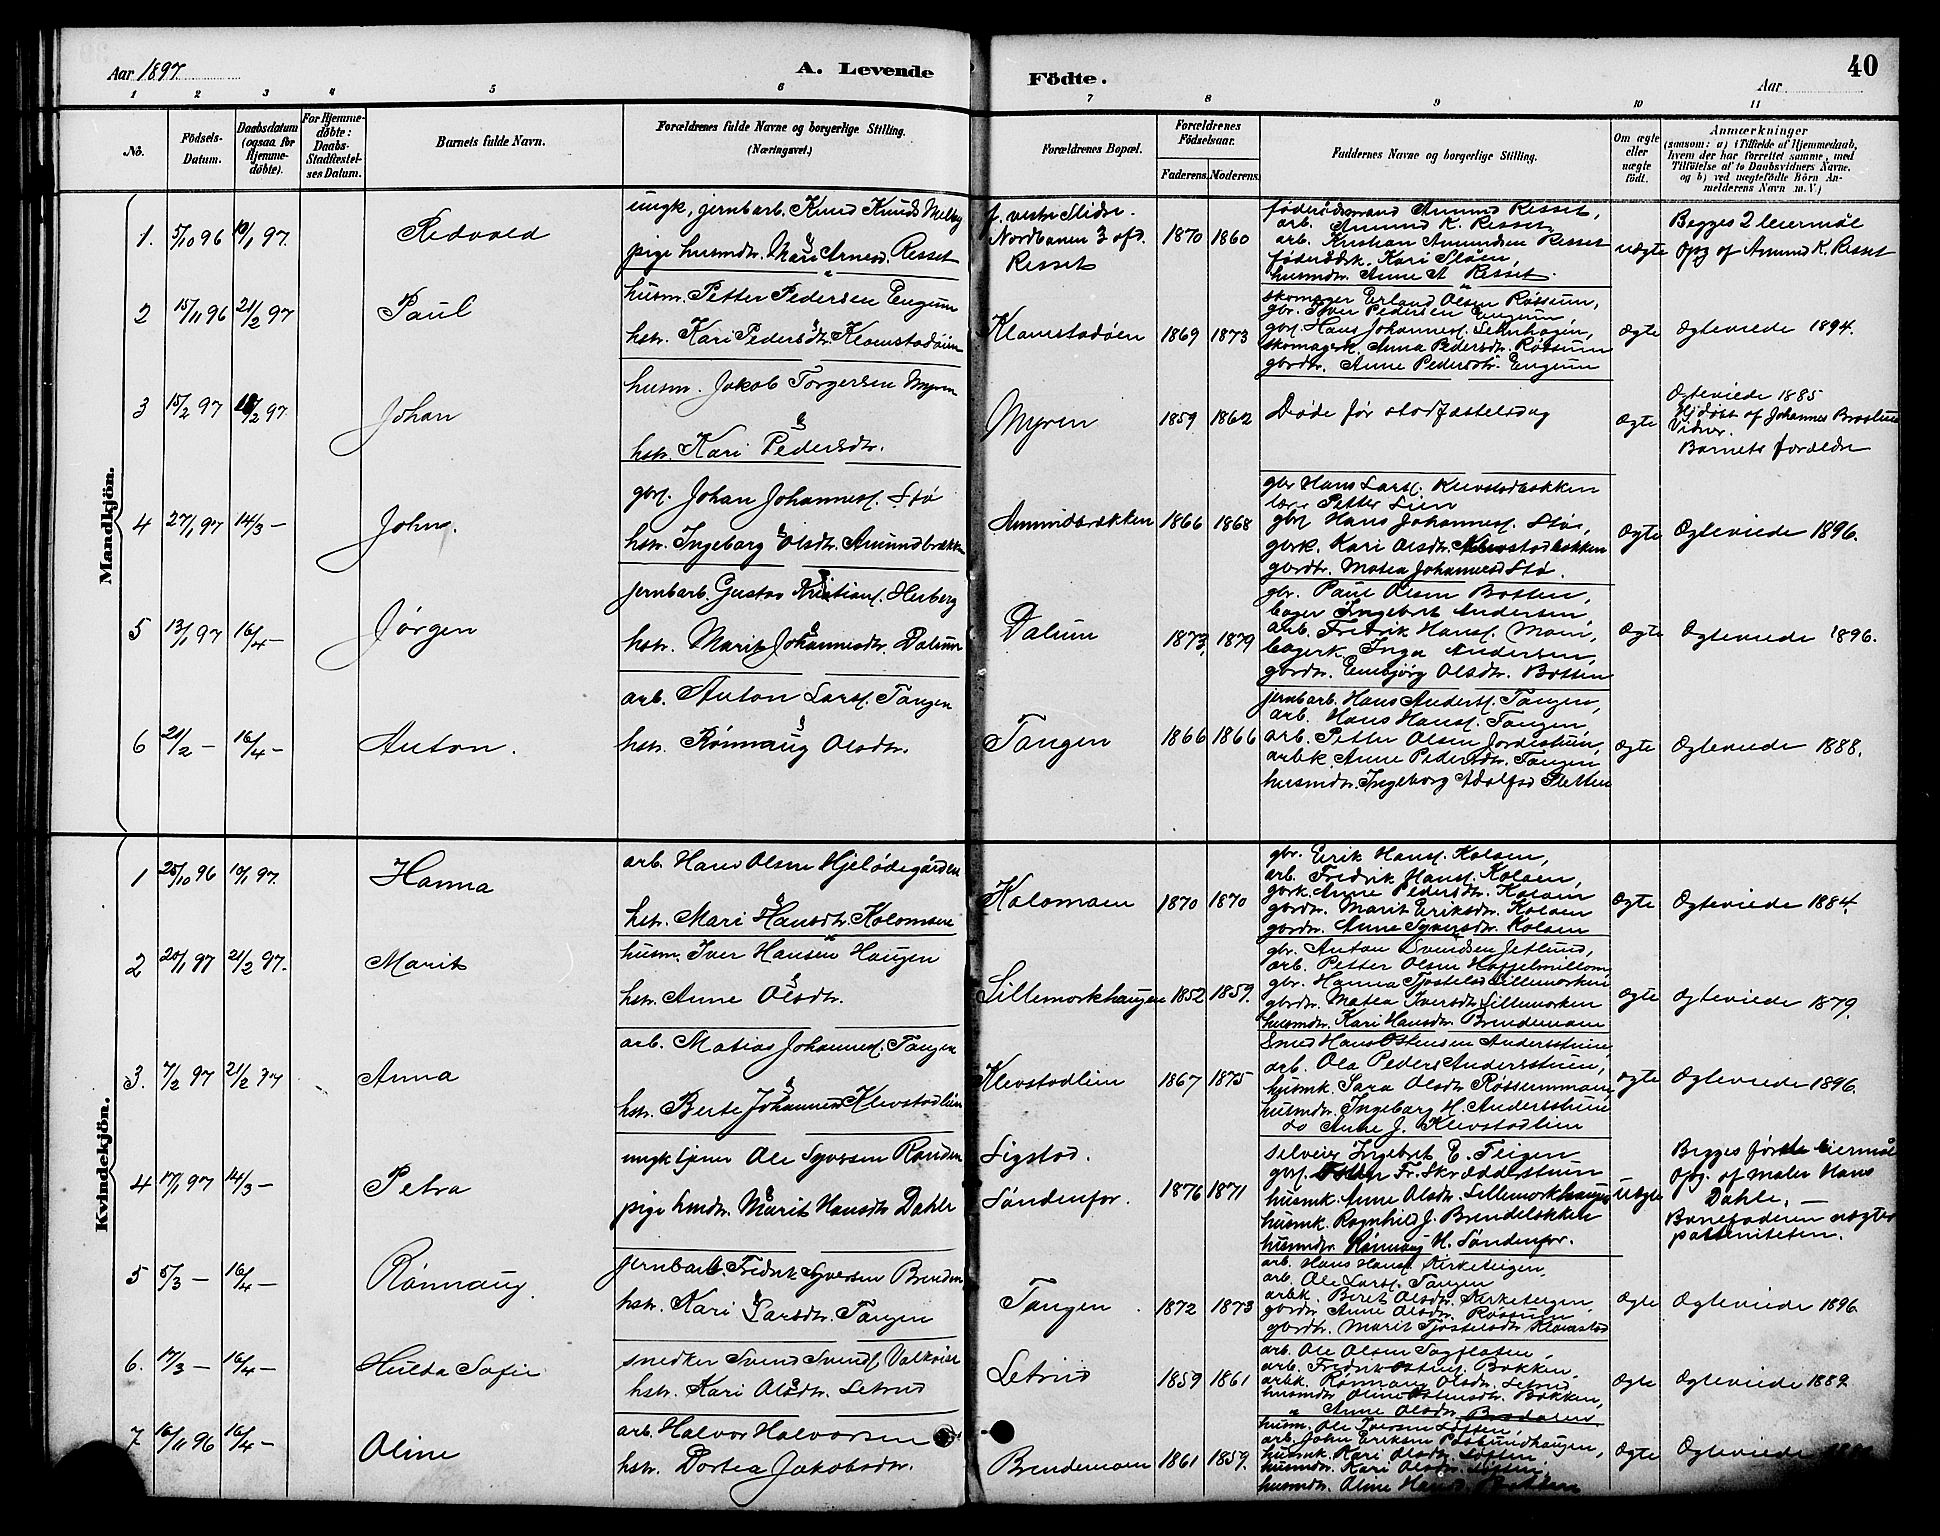 Aar 1897.
A. Levende Födte.
Aar
40
1 2 3 4 5 6 7 8 9 10 11
No.
Födsels-Datum.
Daabsdatum (ogsaa for Hjemme-døbte).
For Hjemme-døbte: Daabs-Stadfæstel-ses Datum.
Barnets fulde Navn.
Forældrenes fulde Navne og borgerlige Stilling. (Næringsvei.)
Forældrenes Bopæl.
Forældrenes Fødselsaar.
Faderens. Moderens.
Faddernes Navne og borgerlige Stilling.
Om ægte eller uægte født.
Anmærkninger
(saasom: a) i Tilfælde af Hjemmedaab, hvem der har forrettet samme, med Tilføielse af to Daabsvidners Navne, og b) ved uægtefødte Børn An-melderens Navn m. V.)
Mandkjön.
1. 5/10 96 10/1 97. Redvald
ungk, jernbarb. Knud Knuds Melby
&
pige husmdtr. Mari Arnesd. Resset
f. vestre Slidre.
Nordbanen 3 afd.
Resset
1870 1860
føderådsmand Amund Resset,
arb. Amund K. Resset
arb. Kristian Amundsen Resset
føderådsk. Kari Sløen,
husmdtr. Anne A Resset.
uægte
Begges 2 leiermål
Opg af Amund K. Resset
2 15/11 96 21/2 97 Paul
husm. Petter Pedersen Engum
&
hstr. Kari Pedersdtr. Klomstadøien
Klomstadøen 1869 1873
skomager Erland Olsen Røssum,
gbr. Iver Pedersen Engum
gbrs. Hans Johannesf.
skomagerk. Anna Pedersdtr. Røssum
gbrdtr. Anne Pedersdtr. Engum
Ægte Ægteviede 1894.
3 15/2 97 /2 97 Johan
husm. Jakob Torgersen Myren
&
hstr. Kari Pedersdtr.
Myren 1859 1862
Døde før stadfæstelsdag
Ægte
Ægteviede 1885
Hjdøbt af Johannes
Vidner.
Barnets forældre
4 27/1 97 14/3 – Johs.
gbrs. Johan Johannesf. Stø
&
hstr. Ingeborg Olsdtr. Amundbrækken
Amundbrækken 1866 1868
gbr Hans Larsf. Klevstadbakken
lærer Petter Lien
gbrs Hans Johannesf. Stø,
gbrk. Kari Olsdtr. Klevstadbakken
gbrdtr. Matea Johannesd Stø.
Ægte Ægteviede 1896.
5 13/1 97 16/4 – Jørgen
jernbarb. Gustav Kristianf. Herberg
&
hstr. Marit Johannesdtr. Dalum
Dalum 1873, 1879
gbr. Paul Olsen Botten,
bager Ingebret Andersen,
arb. Fredrik Hansf. Moen,
bagerk. Inga Andersen,
gbrdtr. Embjørg Olsdtr. Botten
Ægte Ægteviede 1896.
6 21/2 – 16/4 – Anton.
arb. Anton Larsf. Tangen
&
hstr. Rønnaug Olsdtr.
Tangen 1866 1866
jernbarb. Hans Andersf. Tangen,
arb. Hans Hansf. Tangen,
arb. Petter Olsen Jordestuen,
arbk. Anne Pedersdtr. Tangen
husmdtr. Ingeborg Adolfsd Sletten
Ægte Ægteviede 1888.
Kvindekjön.
1 25/10 96 10/1 97. Hanna
arb. Hans Olsen Hjelødegården
&
hstr. Mari Hansdtr. Kolomoen
Kolomoen 1870 1870
gbr. Erik Hansf. Koloen,
arb. Fredrik Hansf. Koloen,
gbrk Anne Pedersdtr. Koloen
gbrdtr. Marit Eriksdtr. Koloen
gbrdtr. Anne Syversdtr. Koloen
Ægte Ægteviede 1884.
2 20/1 97 21/2 97. Marit
husm. Iver Hansen Haugen
&
hstr. Anne Olsdtr.
Lillemorkhaugen 1852 1859.
gbr. Anton Svendsen Jetlund,
arb. Petter Olsen
gbr. Hanna Tjostelsd Lillemorken
gbrdtr. Matea Iversdtr. Lillemorken
husmdtr. Kari Hansdtr. Brendemoen
Ægte Ægteviede 1879.
3. 7/2 97 21/2 97 Anna
arb. Matias Johannesf. Tangen
&
hstr. Berte Johannesd Klevstadlien
Klevstadlien 1867 1875
Smed Hans Østensen Andersstuen,
arb. Ola Peders Andersstuen,
husmk. Sara Olsdtr Røssummoen,
husmdtr. Ingeborg H. Andersstuen
do Anne J. Klevstadlien
Ægte Ægteviede 1896.
4 17/1 97 14/3 – Petra
ungk tjener Ole Syversen Rønden
&
pige hmdtr. Marit Hansdtr Dahle
Sigstad.
Søndenfor.
1876 1871
selveier Ingebret E. Teigen
gbrs. Østen Fr. Skræddarstuen
husmk. Anne Olsdtr. Lillemorkhaugen
husmk. Ragnhild J. Brendeløkken
husmdtr Rønnaug H. Søndenfor.
Uægte
Begges første leiermål
Opg. af maler Hans
Dahle, –
Barnefaderen nægter
paterniteten.
5 5/3 – 16/4 – Rønnaug.
jernbarb. Fredrik Syversen Brenden
&
hstr. Kari Larsdtr. Tangen
Tangen. 1872 1873
arb. Hans Hansf. Kirketeigen,
arb. Ole Larsf. Tangen
arbk. Beret Olsdtr. Kirketeigen,
gbrdtr Anne Olsdtr. Røssum
gbrdtr. Marit Tjostelsdtr Klomstad
Ægte Ægteviede 1896.
6. 17/3 – 16/4 – Hulda Sofie
snedker Svend Svendsf. Valkvier
&
hstr. Kari Olsdtr. Letrud
Letrud 1859 1861
arb. Ole Olsen Sagflaten,
arb. Fredrik Bakken,
arbk. Rønnaug Olsdtr. Letrud
husmdtr. Oline Østensdtr. Bakken,
" Anne Olsdtr.
Ægte Ægteviede 1889
7. 16/11 96 16/4 – Oline
arb. Halvor Halvorsen
hstr. Dortea Jakobsdtr.
Brendemoen 1861 1859.
husm. Ole Iversen
arb. John Eriksen
husmk. Kari Olsdtr.
husmdtr. Kari Olsdtr.
husmdtr. Oline
Ægte Ægteviede